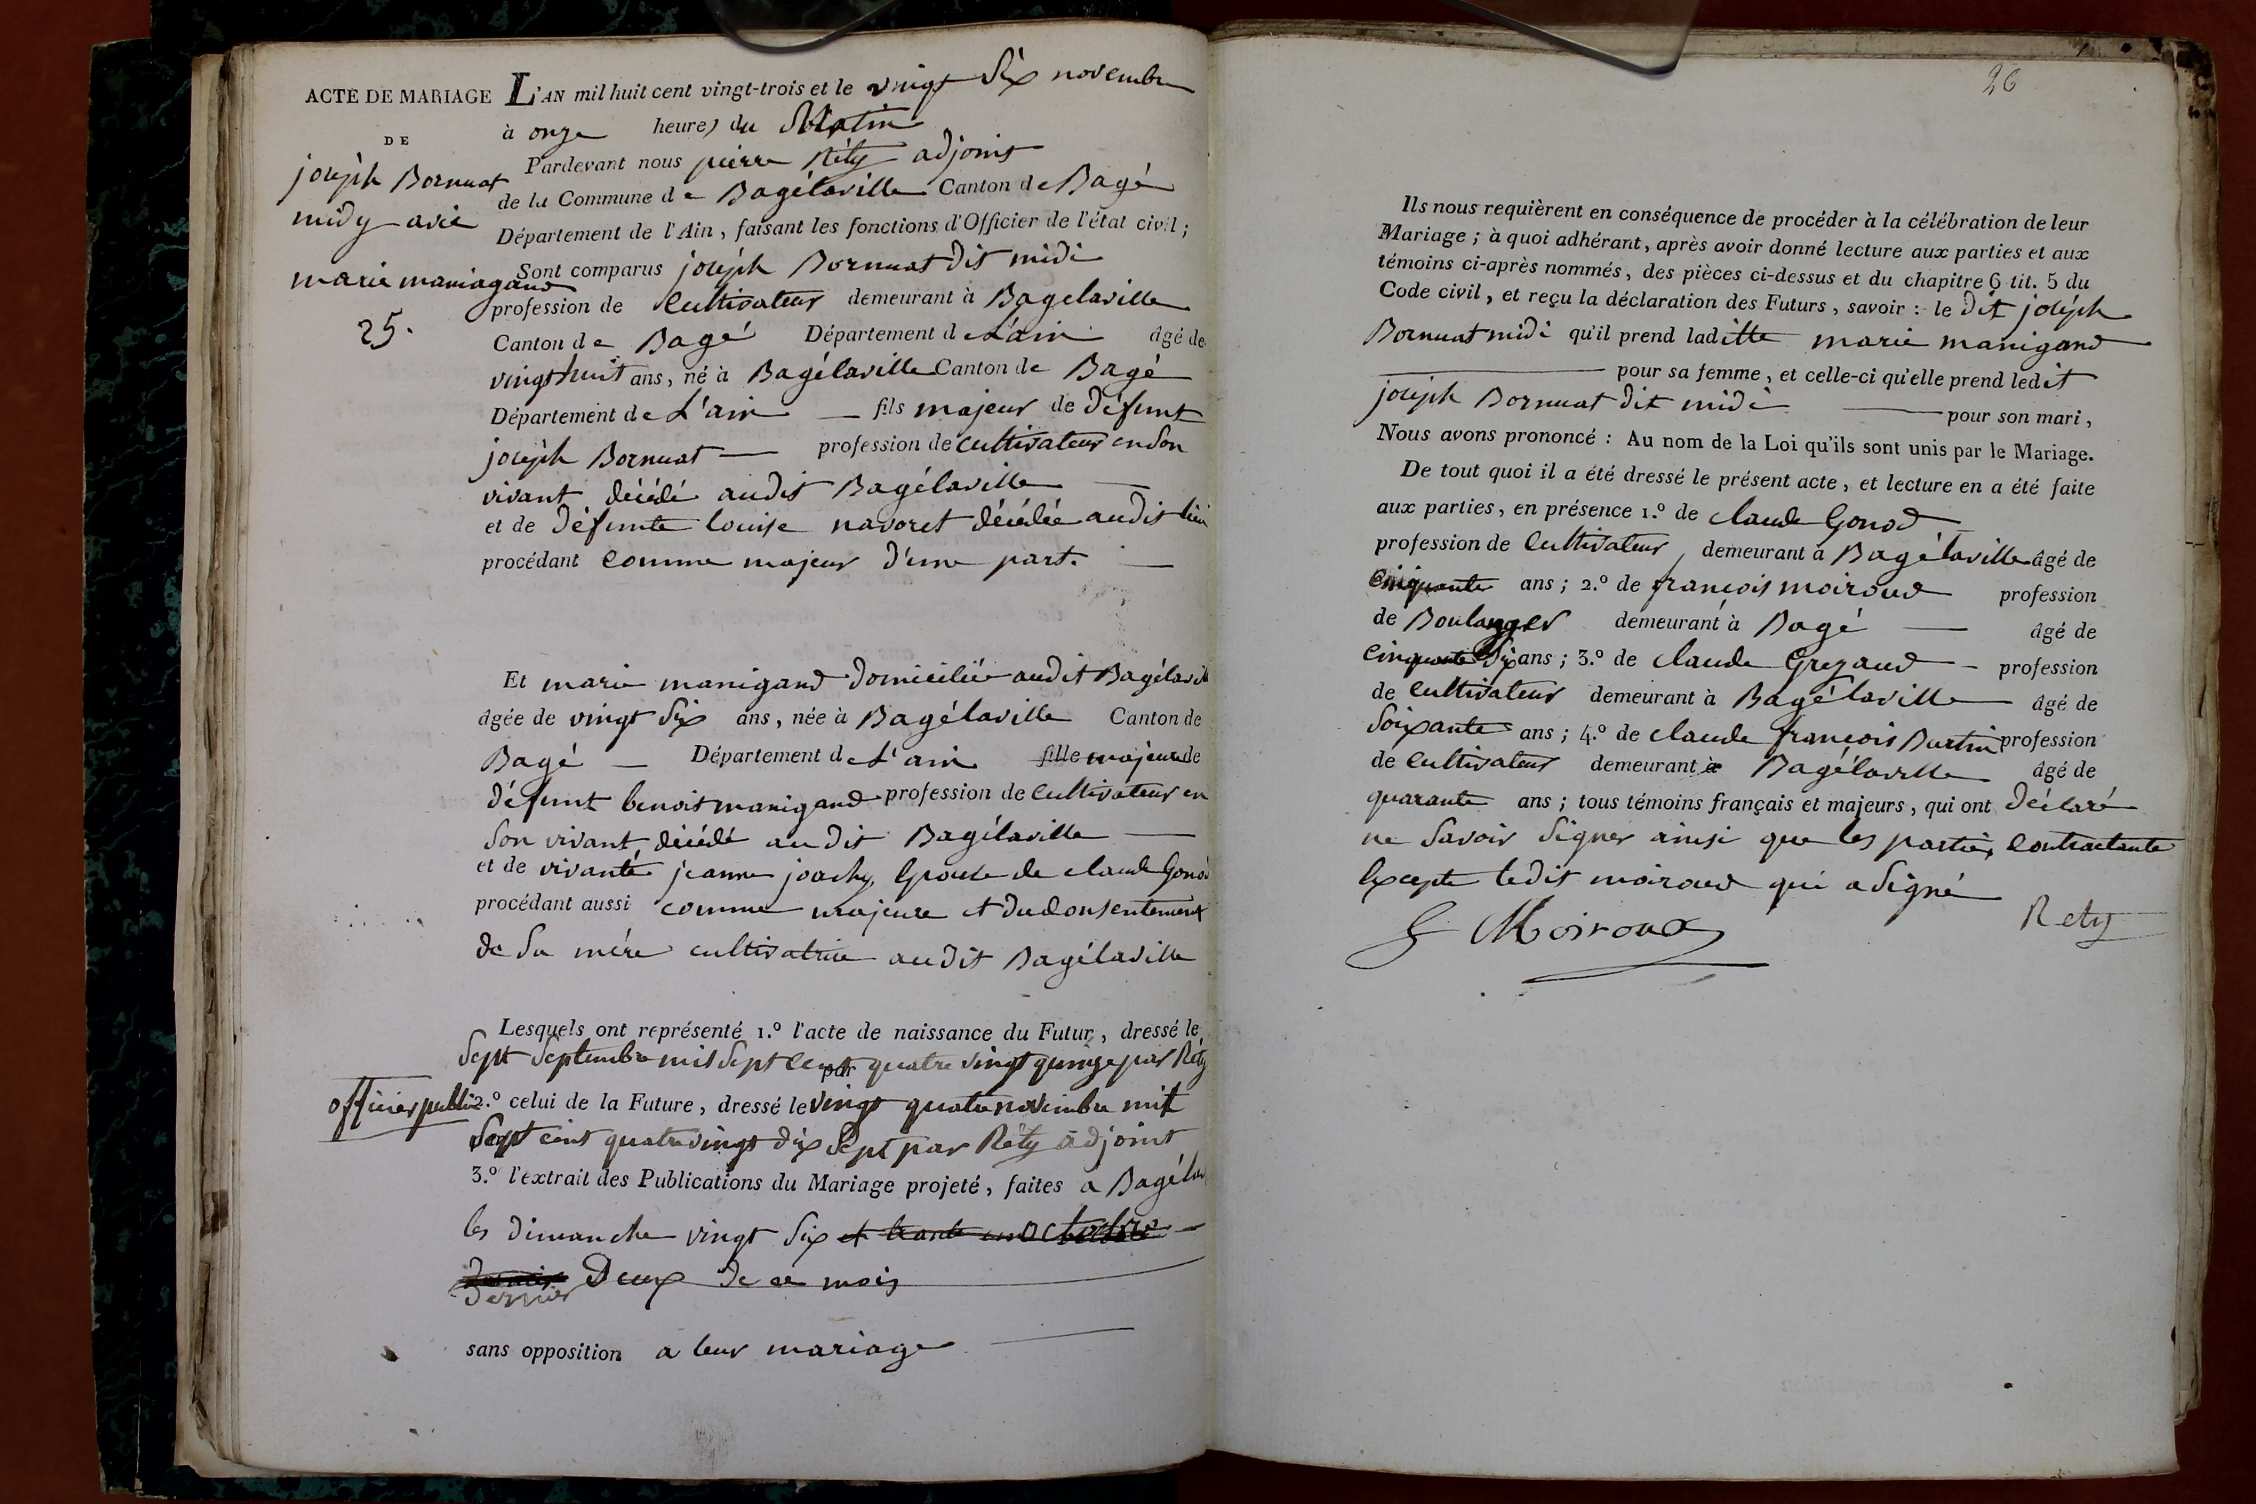 ACTE DE MARIAGE
DE
joseph Bornuat
midy avec
marie maniagand
25.
L'AN mil huit cent vingt-trois et le vingt Six novembre
à onze heures du Matin
Pardevant nous pierre Réty adjoint
de la Commune de Bagélaville Canton de Bagé
Département de l'Ain, faisant les fonctions d'Officier de l'état civil;
Sont comparus joseph Bornuat dit midi
profession de Cultivateur demeurant à Bagelaville
Canton de Bagé Département de L'ain âgé de
vingt huit ans, né à Bagélaville Canton de Bagé
Département de L'ain — fils majeur de défunt
joseph Bornuat — profession de Cultivateur en Son
vivant décédé audit Bagélaville —
et de défunte louise navoret décédée audit lieu
procédant comme majeur d'une part. —
Et marie manigand domiciliée audit Bagélaville
âgée de vingt Six ans, née à Bagélaville Canton de
Bagé — Département de L'ain fille majeure de
défunt benoit manigand profession de Cultivateur en
Son vivant décédé audit Bagélaville —
et de vivante jeanne Epouse de claude Gonod
procédant aussi comme majeure et du Consentement
de Sa mère cultivatrice audit Bagélaville
Lesquels ont représenté 1.º l'acte de naissance du Futur, dressé le
Sept Septembre mil Sept Cent quatre vingt quinze par Réty
officier public
2.º celui de la Future, dressé le vingt quatre novembre mil
Sept cent quatre vingt dix Sept par Réty adjoint
3.º l'extrait des Publications du Mariage projeté, faites a Bagélav
les dimanche vingt Six et trente un octobre —
dernier Deux de ce mois
dernier
sans opposition a leur mariage
26
Ils nous requièrent en conséquence de procéder à la célébration de leur
Mariage; à quoi adhérant, après avoir donné lecture aux parties et aux
témoins ci-après nommés, des pièces ci-dessus et du chapitre 6 tit. 5 du
Code civil, et reçu la déclaration des Futurs, savoir: le dit joseph
Bornuat midi qu'il prend laditte marie manigand
— pour sa femme, et celle-ci qu'elle prend ledit
joseph Bornuat dit midi — pour son mari,
Nous avons prononcé: Au nom de la Loi qu'ils sont unis par le Mariage.
De tout quoi il a été dressé le présent acte, et lecture en a été faite
aux parties, en présence 1.º de claude Gonod
profession de Cultivateur, demeurant à Bagélaville âgé de
Cinquante ans; 2.º de françois moiroud profession
de Boulanger demeurant à Bagé — âgé de
Cinquante Six ans; 3.º de claude Grezaud — profession
de Cultivateur demeurant à Bagélaville âgé de
Soixante ans; 4.º de claude françois Burtin profession
de Cultivateur demeurant à Bagélaville âgé de
quarante ans; tous témoins français et majeurs, qui ont déclaré
ne Savoir Signer ainsi que les parties Contractante
Excepte ledit moiroud qui a Signé
f Moiroux
Rety